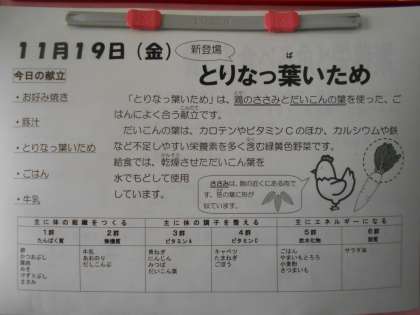 11月19日（金）
新登場
とりなっ葉いため
ば
今日の献立
・お好み焼き
・豚汁
・とりなっ葉いため
・ごはん
・牛乳
「とりなっ葉いため」は、鶏のささみとだいこんの葉を使った、ご
はんによく合う献立です。
だいこんの葉は、カロテンやビタミンCのほか、カルシウムや鉄
など不足しやすい栄養素を多く含む緑黄色野菜です。
給食では、乾燥させただいこんの葉を
水でもどして使用
しています。
ささみは、胸の近くにある肉で
す。笹の葉に形が
似ています。
主に体の組織をつくる
主に体の調子を整える
主にエネルギーになる
1群
たんぱく質
2群
無機質
3群
ビタミンA
4群
ビタミンC
5群
炭水化物
6群
脂質
卵
かつおぶし
豚肉
みそ
ささみ
牛乳
あおのり
だしこんぶ
青ねぎ
にんじん
みつば
だいこん葉
キャベツ
たまねぎ
ごぼう
ごはん
やまいもとろろ
小麦粉
さつまいも
サラダ油